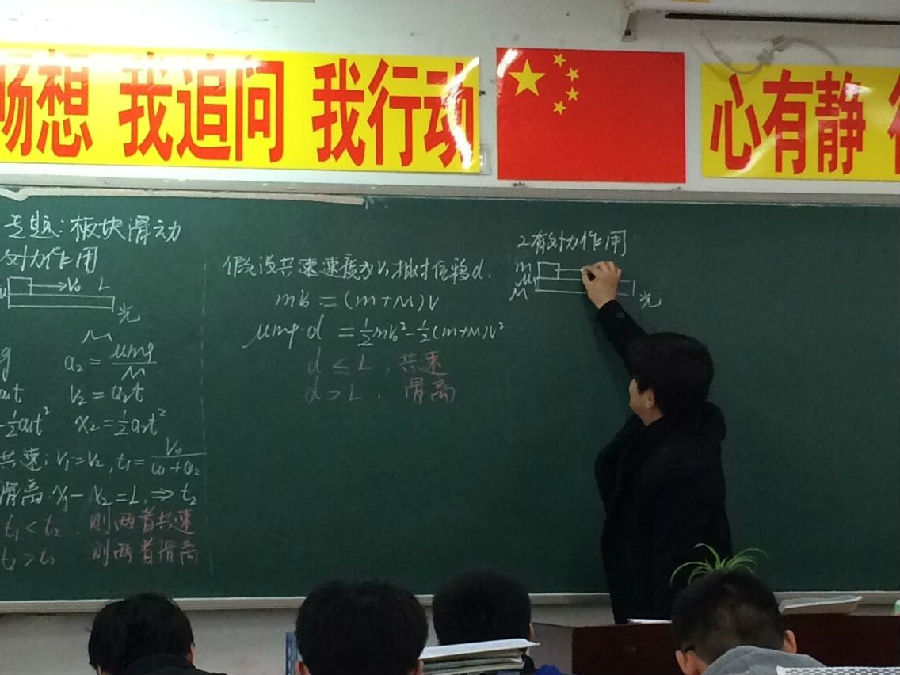 畅想 我追问 我行动
心有静
专题:板块滑动
对力作用
v₀ L
光
M
a₂ = μmg/M
v₂ = a₂t
x₂ = ½a₂t²
共速: v₁=v₂, t₁= v₀/(a₁+a₂)
滑离: x₁-x₂=L, ⇒ t₂
t₁<t₂ 则两者共速
t₁>t₂ 则两者滑离
假设共速速度为v,相对位移d.
mv₀ = (m+M)v
μmg·d = ½mv₀²-½(m+M)v²
d ≤ L, 共速
d > L, 滑离
2有对力作用
m
μ
M
光